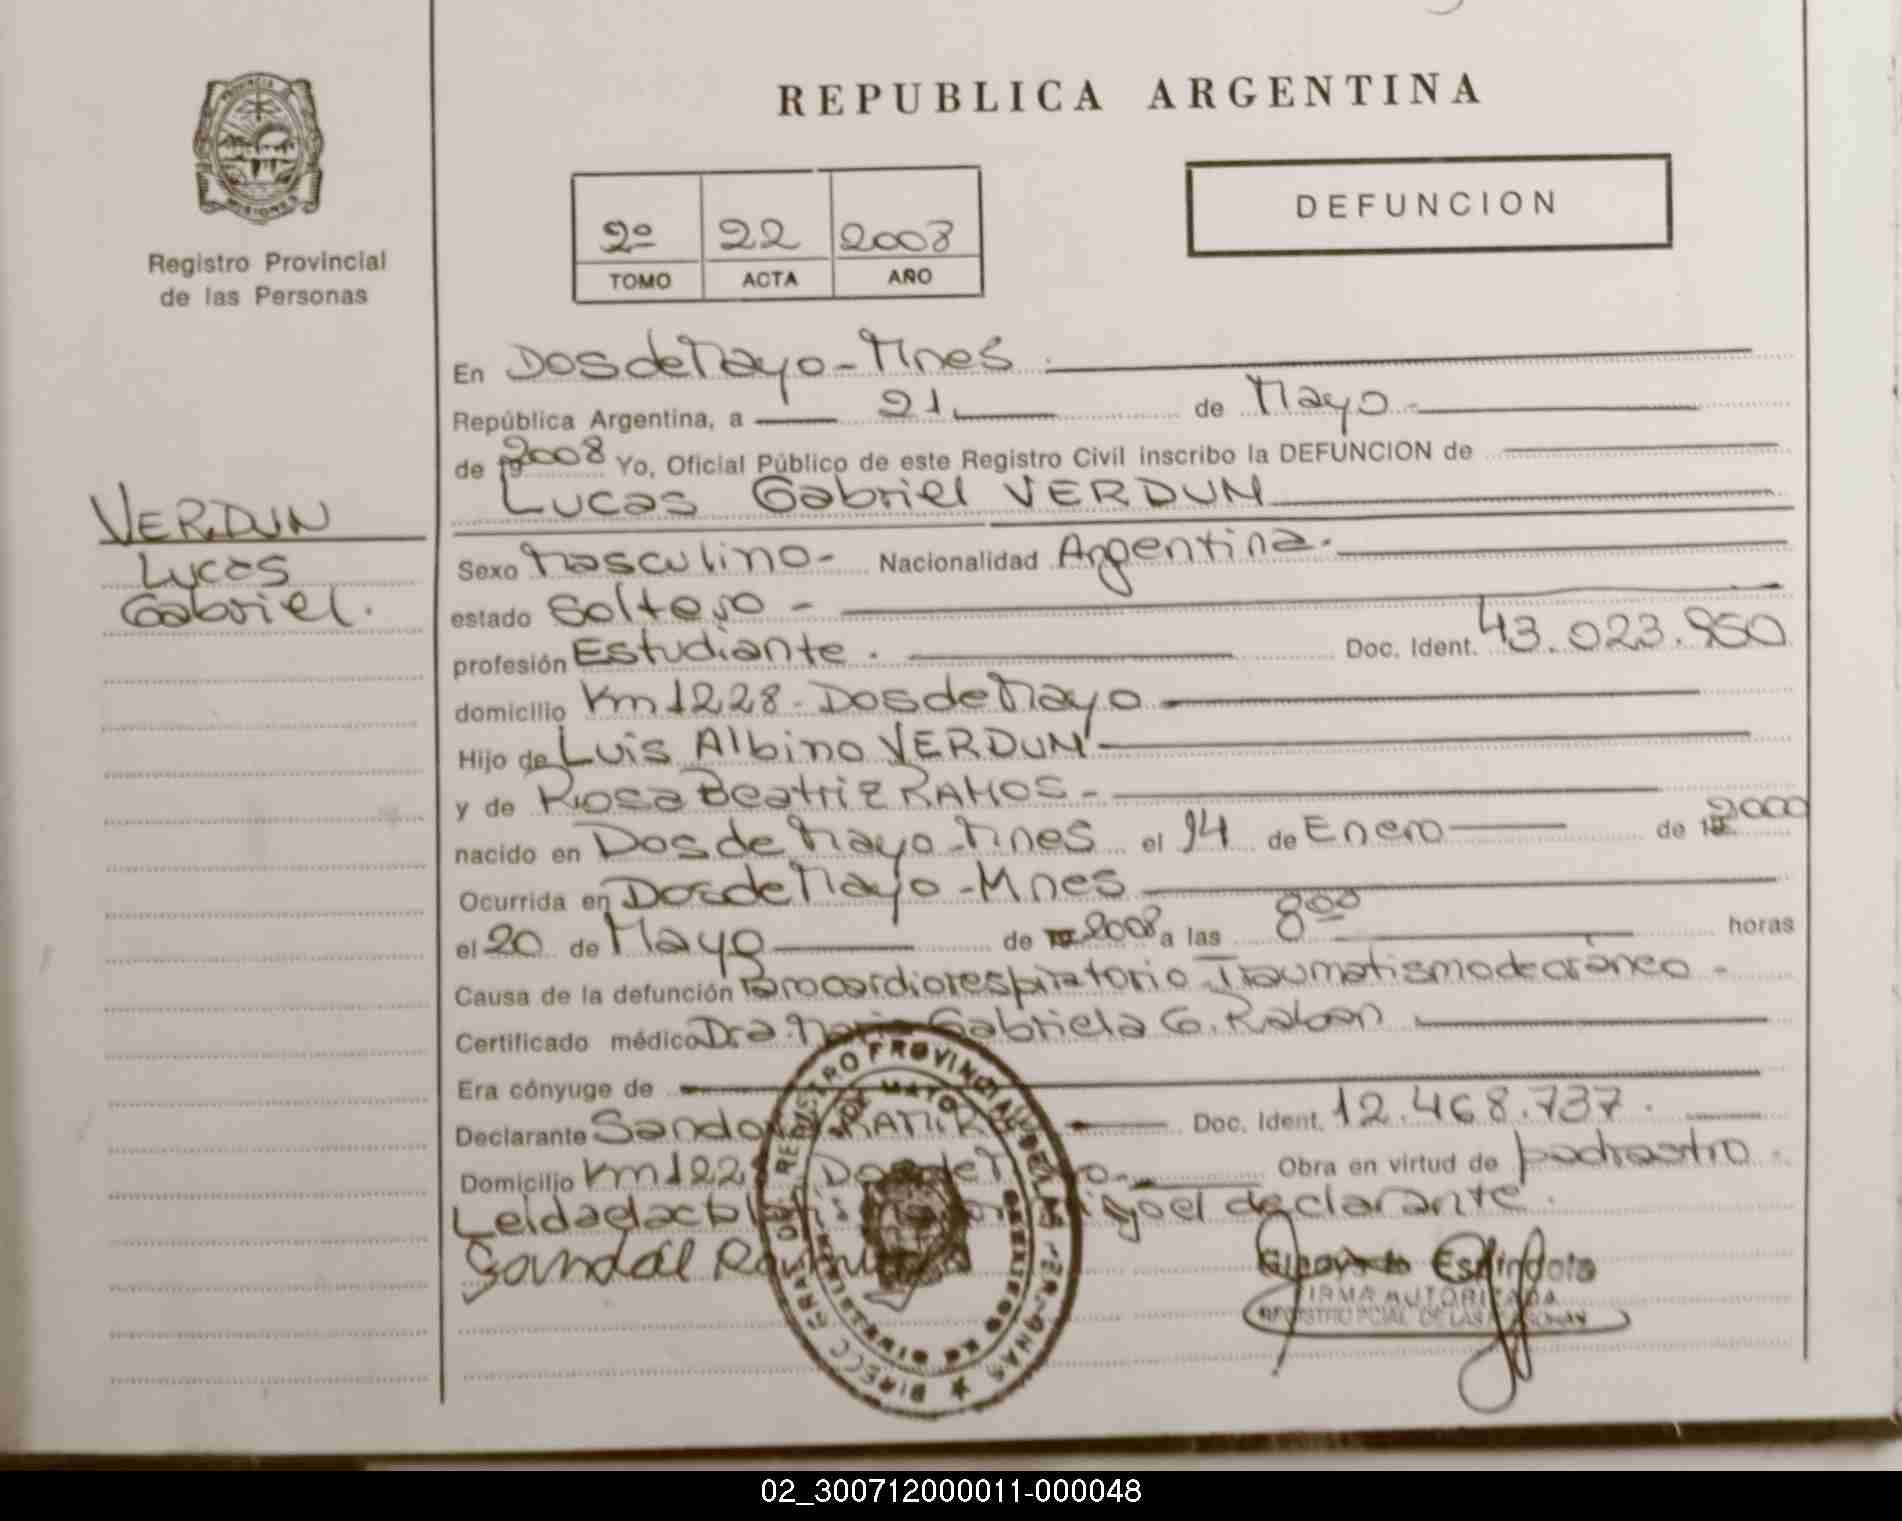 PROVINCIA
MISIONES
Registro Provincial
de las Personas
VERDUN
Lucas
Gabriel.
REPUBLICA ARGENTINA
2º 22 2008
TOMO ACTA AÑO
DEFUNCION
En Dos de Mayo - Mnes
República Argentina, a 21 de Mayo
de 2008 Yo, Oficial Público de este Registro Civil inscribo la DEFUNCION de
Lucas Gabriel VERDUN
Sexo Masculino - Nacionalidad Argentina.
estado Soltero -
profesión Estudiante. Doc. Ident. 43.023.950
domicilio Km 1228 - Dos de Mayo
Hijo de Luis Albino VERDUN
y de Rosa Beatriz RAMOS -
nacido en Dos de Mayo - Mnes el 14 de Enero de 2000
Ocurrida en Dos de Mayo - Mnes
el 20 de Mayo de 2008 a las 8⁰⁰ horas
Causa de la defunción Parocardiorespiratorio - Traumatismo de cráneo -
Certificado médico Dra. Maria Gabriela G.
Era cónyuge de
Declarante Doc. Ident. 12.468.737.
Domicilio Km 122 Dos de Obra en virtud de padrastro.
Leida el acta declarante.
Espíndola
FIRMA AUTORIZADA
REGISTRO PCIAL. DE LAS PERSONAS
REGISTRO PROVINCIAL DE LAS PERSONAS
02_300712000011-000048